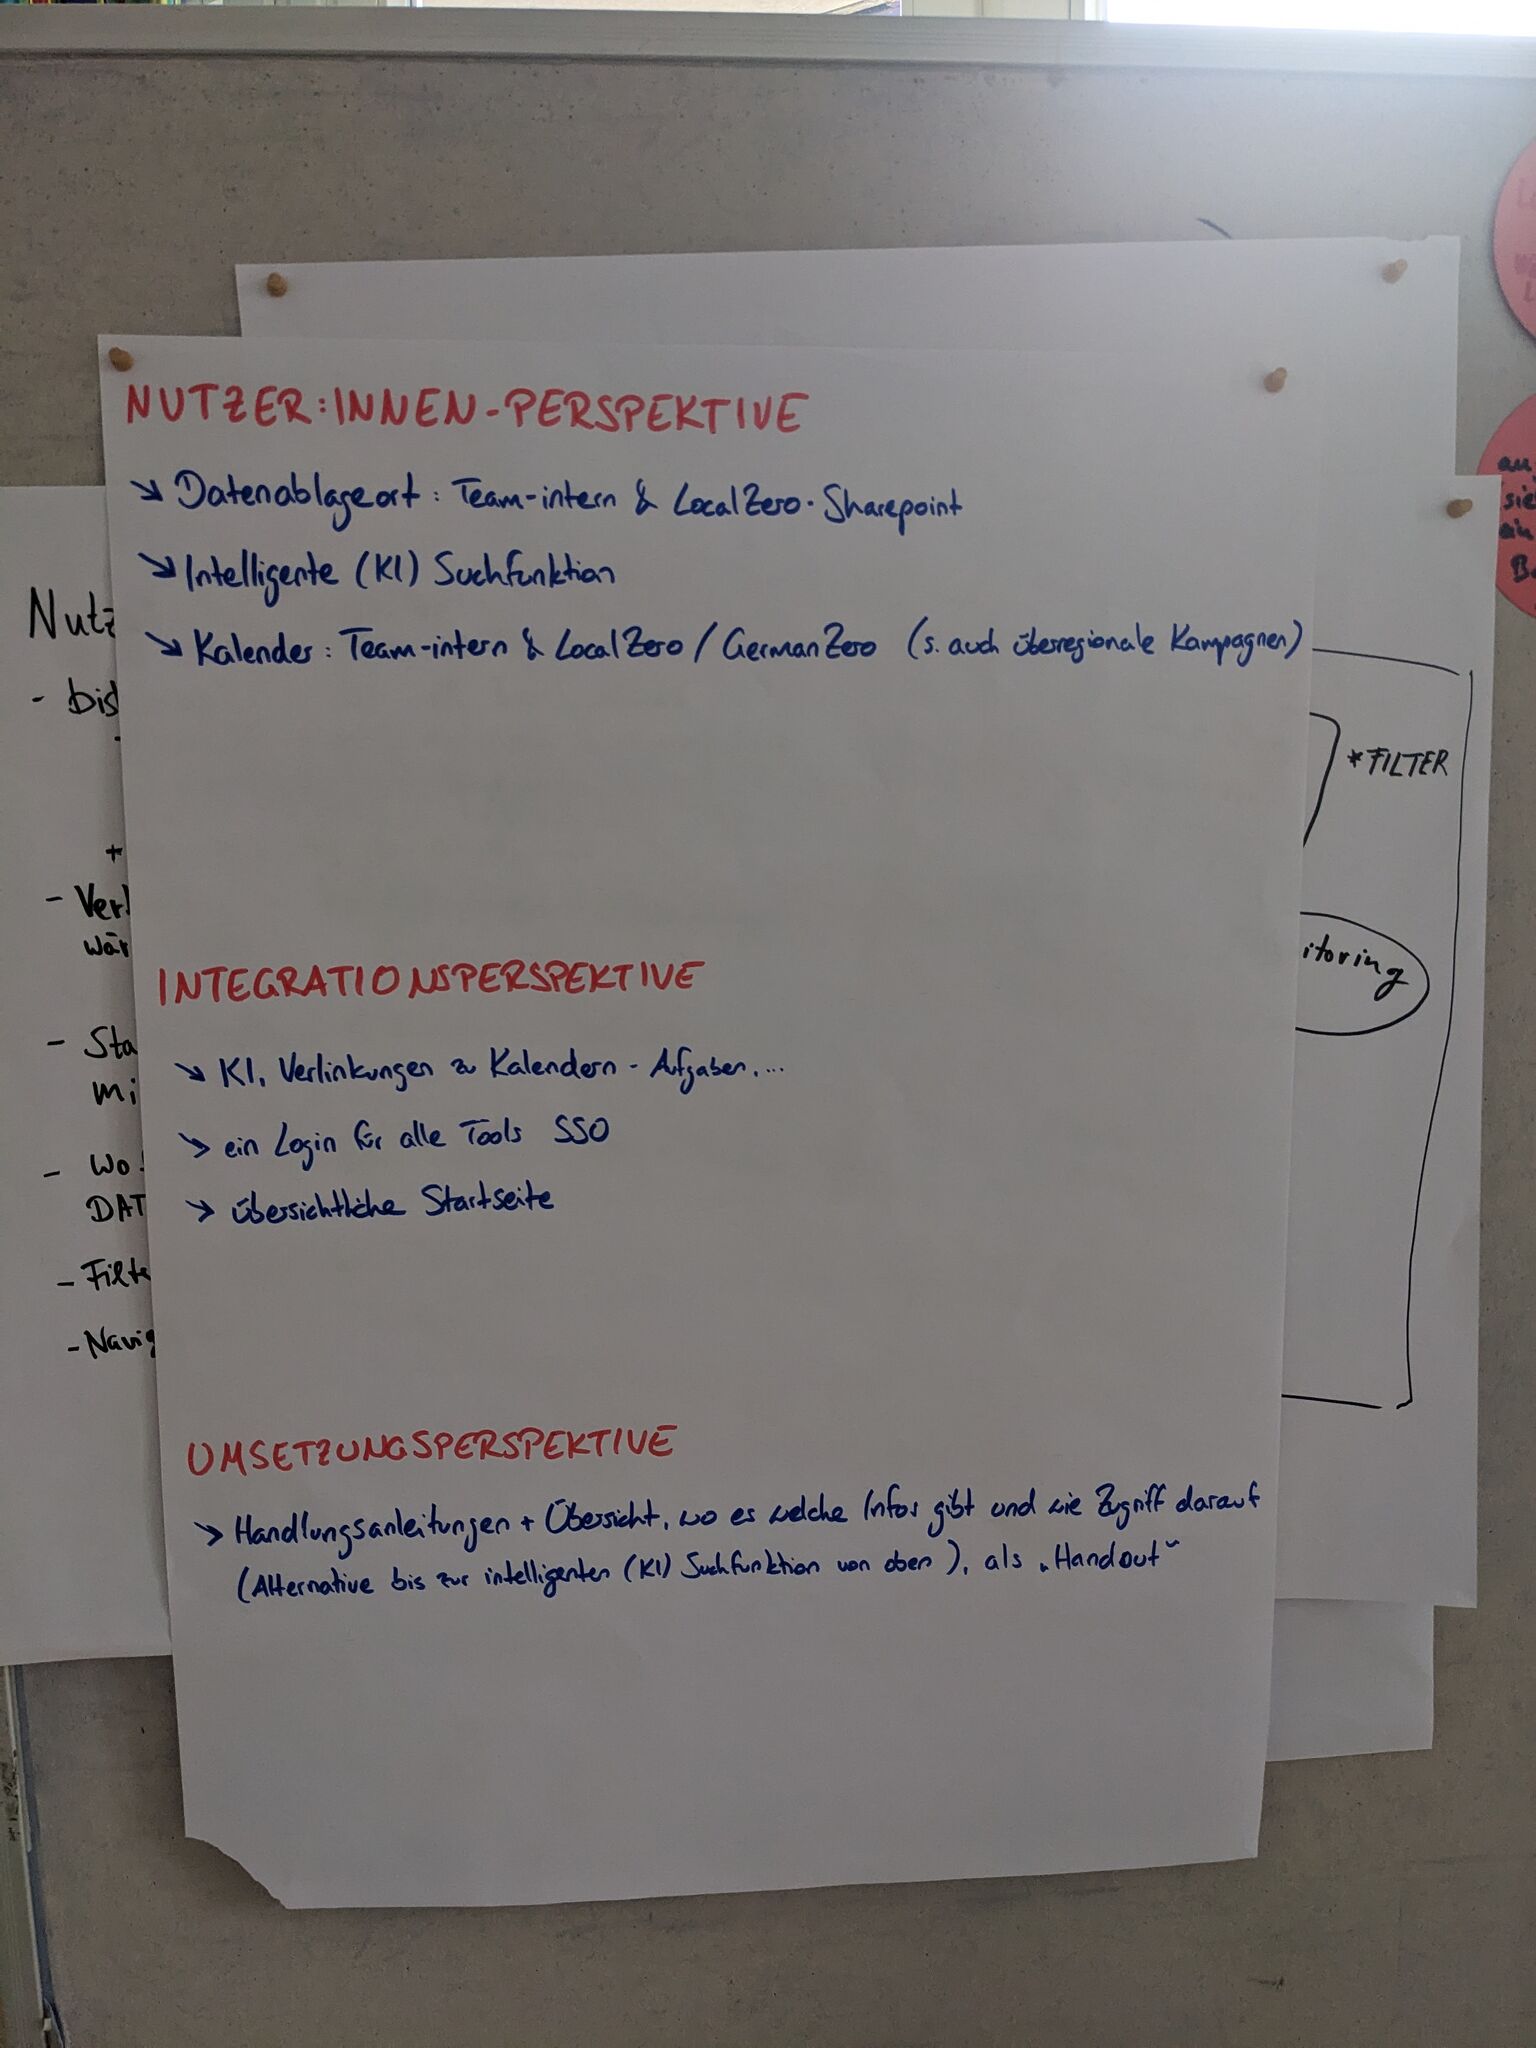 NUTZER:INNEN-PERSPEKTIVE
↘ Datenablageort: Team-intern & LocalZero-Sharepoint
↘ Intelligente (KI) Suchfunktion
↘ Kalender: Team-intern & LocalZero / GermanZero (s. auch überregionale Kampagnen)
INTEGRATIONSPERSPEKTIVE
↘ KI, Verlinkungen zu Kalendern - Aufgaben, ...
↘ ein Login für alle Tools SSO
↘ übersichtliche Startseite
UMSETZUNGSPERSPEKTIVE
↘ Handlungsanleitungen + Übersicht, wo es welche Infos gibt und wie Zugriff darauf
(Alternative bis zur intelligenten (KI) Suchfunktion von oben), als „Handout"
Nutz
- bis
+
- Verl
wär
- Sta
mi
- Wo
DAT
- Filte
- Navig
*FILTER
itoring
an
sie
ein